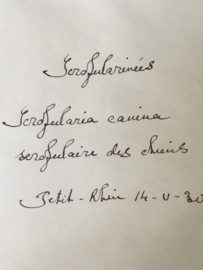 Scrofularinées
Scrofularia canina
scrofulaire des chiens
Petit-Rhin 14-V-30